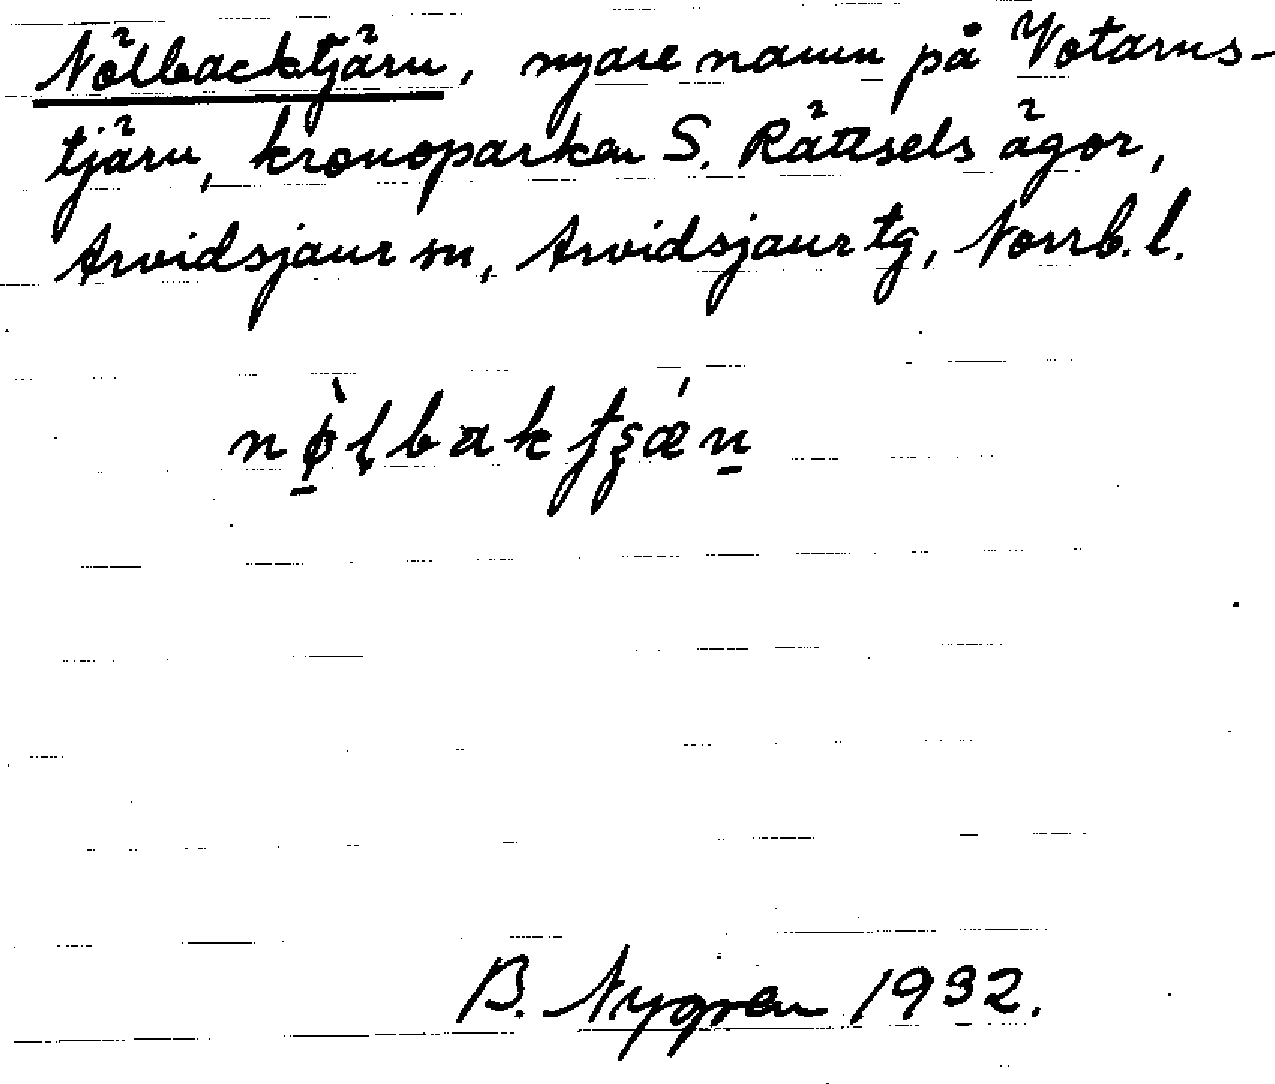 Nölbacktjärn, nyare namn på Votarns-
tjärn, kronoparken S. Rättsels ägor,
Arvidsjaur sn, Arvidsjaur tg, Norrb. l.
B. Nygren 1932.